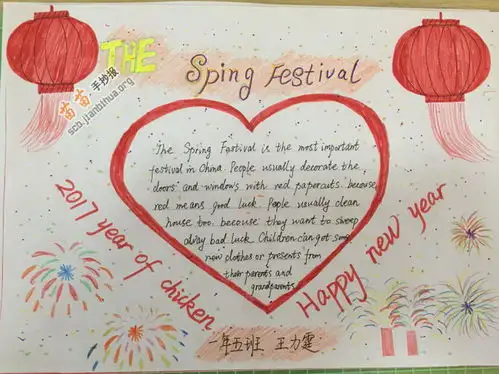 THE
Sping Festival
苗苗手抄报
scb.jianbihua.org
The Spring Fastival is the most important
festival in China. People usually decorate the
doors and windows with red papercuts. because
red means good luck. Peple usually clean
house too. because they want to sweep
away bad luck. Children can get some
new clothes or presents from
their parents and
grandparents.
2017 year of chicken
Happy new year
一年五班 王力霆